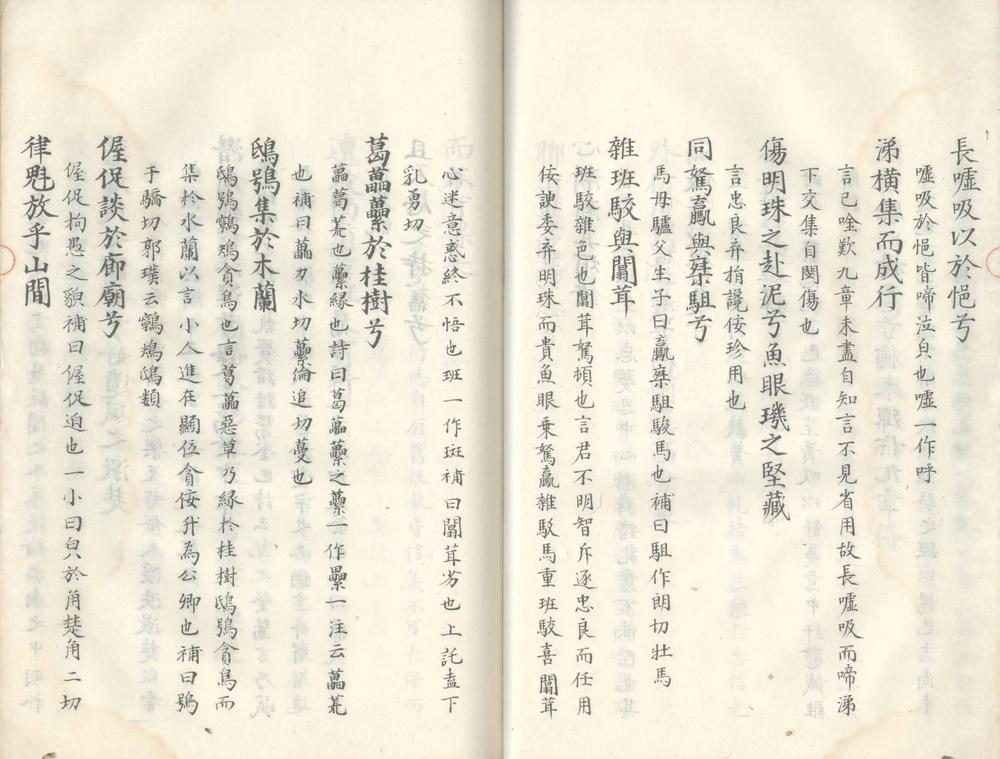 長噓吸以於悒兮
噓吸於悒皆啼泣皃也噓一作呼
涕橫集而成行
言己唫歎九章未盡自知言不見省用故長噓吸而啼涕
下交集自閔傷也
傷明珠之赴泥兮魚眼璣之堅藏
言忠良弃捐讒佞珍用也
同駑驘與椉駔兮
馬母驢父生子曰驘椉駔駿馬也補曰駔作朗切壯馬
雜班駮與闒茸
班駮雜色也闒茸駑頓也言君不明智斥逐忠良而任用
佞諛委弃明珠而貴魚眼乗駑驘雜駁馬重班駮喜闒茸
心迷意惑終不悟也班一作斑補曰闒茸劣也上託盍下
乳勇切
葛藟虆於桂樹兮
藟葛荒也虆緣也詩曰葛藟虆之虆一作纍一注云藟荒
也補曰藟力水切虆倫追切蔓也
鴟鴞集於木蘭
鴟鴞鸋鴂貪鳥也言葛藟惡草乃緣於桂樹鴟鴞貪鳥而
集於水蘭以言小人進在顯位貪佞升為公卿也補曰鴞
于驕切郭璞云鸋鴂鴟類
偓促談於廊廟兮
偓促拘愚之貌補曰偓促迫也一小曰皃於角楚角二切
律魁放乎山間